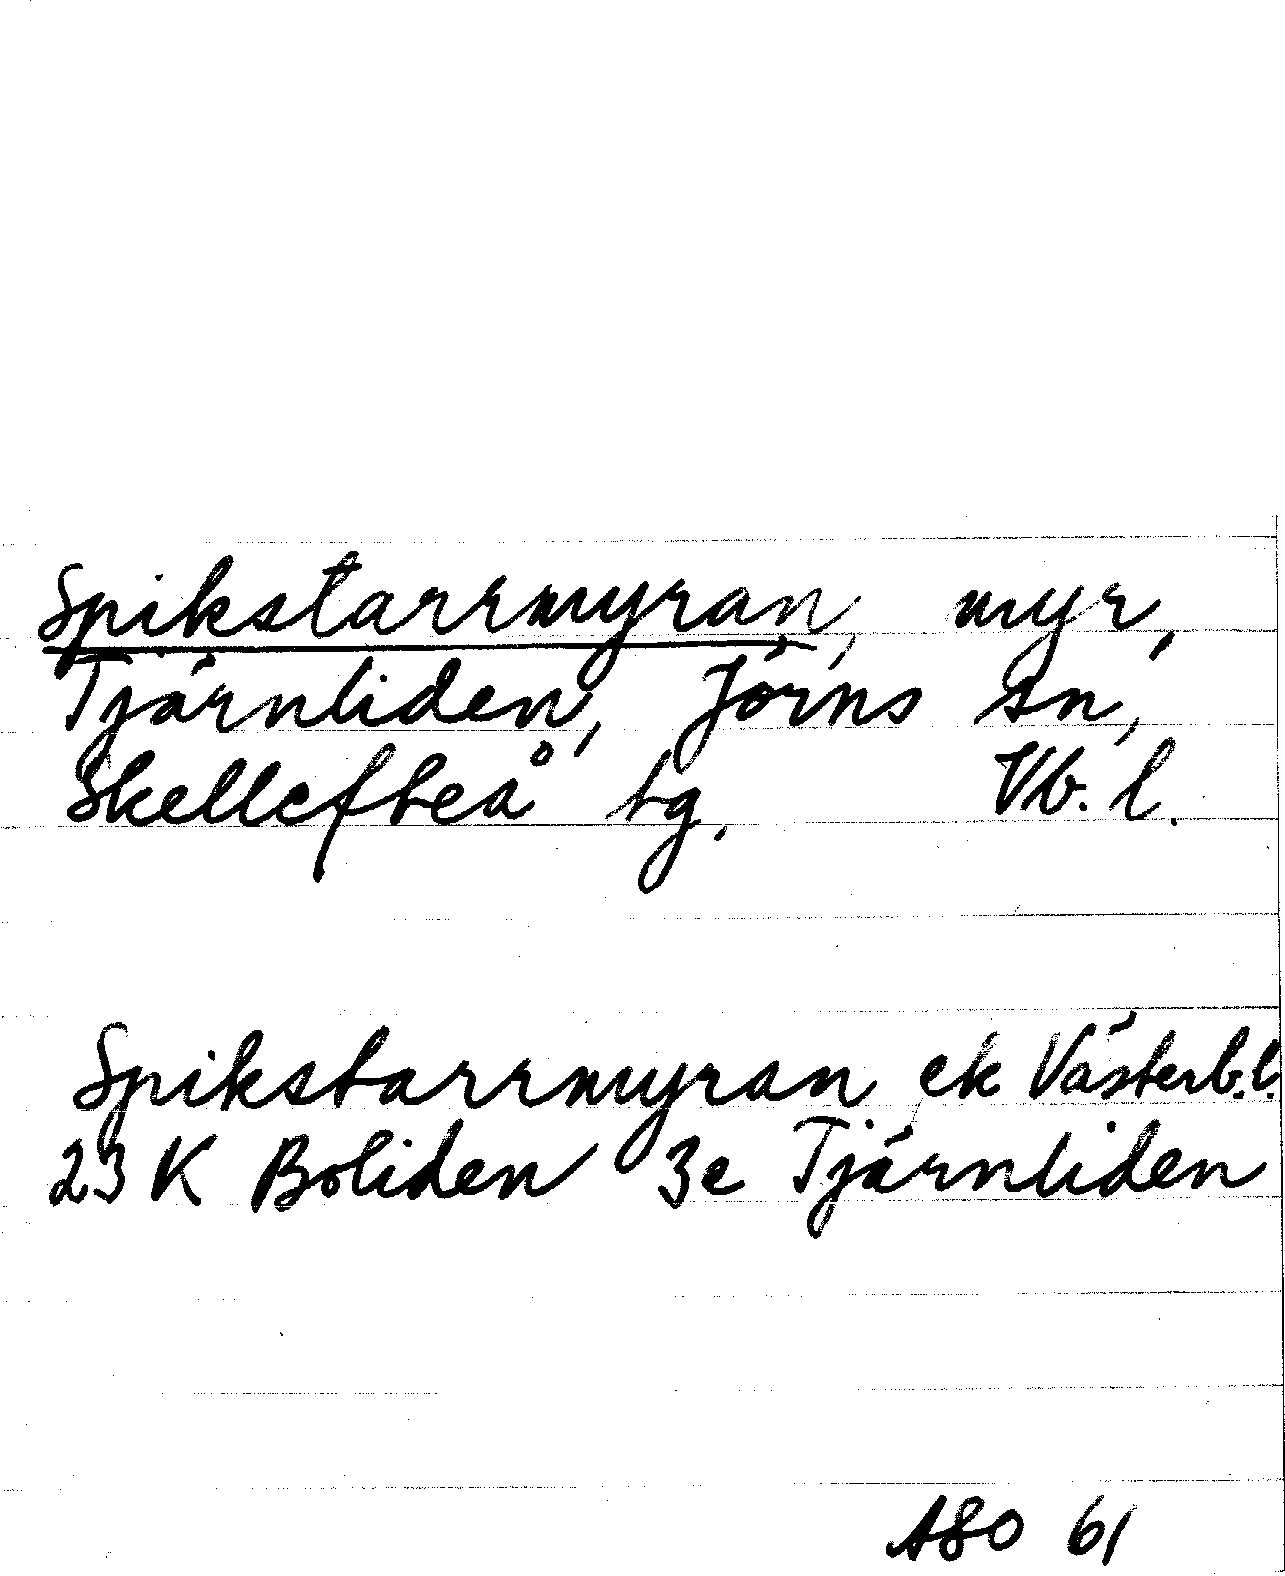 Spikstarrmyran, myr,
Tjärnliden, Jörns sn,
Skellefteå tg, Vb. l.
Spikstarrmyran ek Västerb.l.
23 K Boliden 3e Tjärnliden
ABO 61